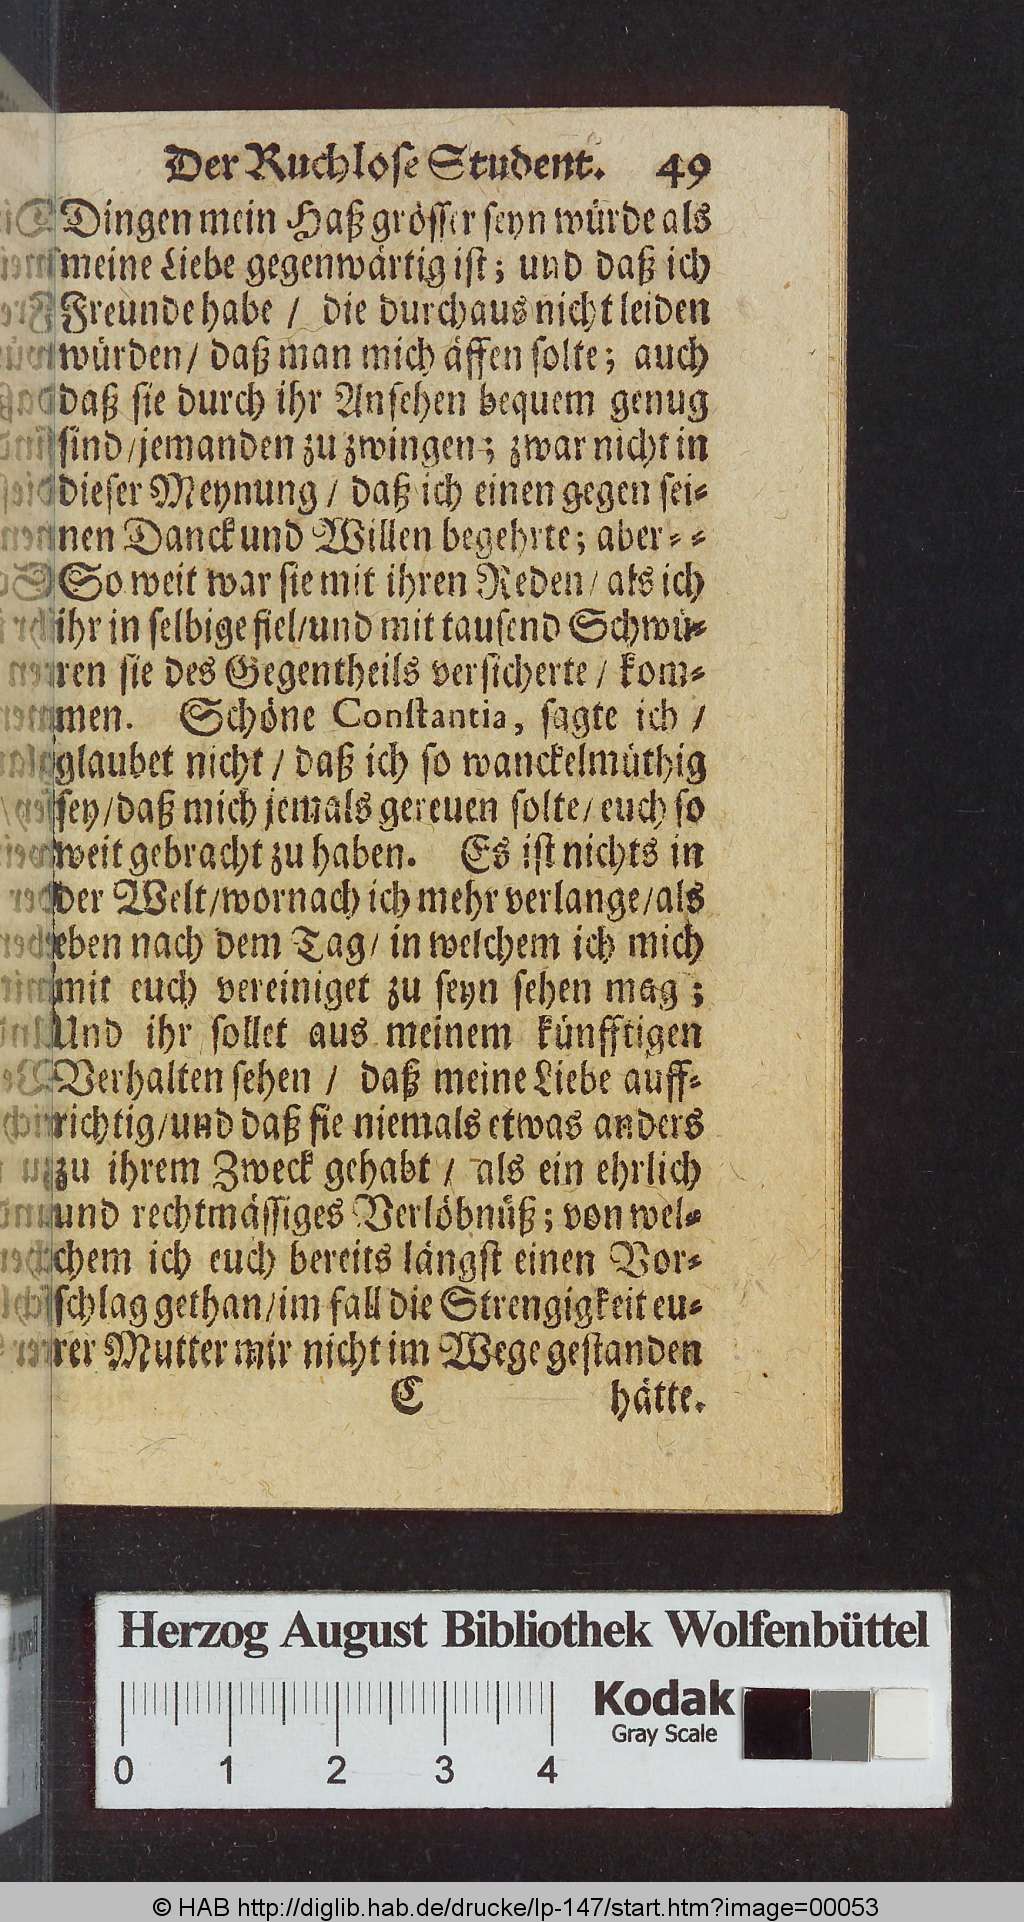 Der Ruchlose Student. 49
Dingen mein Haß grösser seyn würde als
meine Liebe gegenwärtig ist; und daß ich
Freunde habe / die durchaus nicht leiden
würden / daß man mich äffen solte; auch
daß sie durch ihr Ansehen bequem genug
sind / jemanden zu zwingen; zwar nicht in
dieser Meynung / daß ich einen gegen sei-
nen Danck und Willen begehrte; aber- -
So weit war sie mit ihren Reden / als ich
ihr in selbige fiel / und mit tausend Schwü-
ren sie des Gegentheils versicherte / kom-
men. Schöne Constantia, sagte ich /
glaubet nicht / daß ich so wanckelmüthig
sey / daß mich jemals gereuen solte / euch so
weit gebracht zu haben. Es ist nichts in
der Welt / wornach ich mehr verlange / als
eben nach dem Tag / in welchem ich mich
mit euch vereiniget zu seyn sehen mag;
Und ihr sollet aus meinem künfftigen
Verhalten sehen / daß meine Liebe auff-
richtig / und daß sie niemals etwas anders
zu ihrem Zweck gehabt / als ein ehrlich
und rechtmässiges Verlöbnüß; von wel-
chem ich euch bereits längst einen Vor-
schlag gethan / im fall die Strengigkeit eu-
rer Mutter mir nicht im Wege gestanden
C hätte.
Herzog August Bibliothek Wolfenbüttel
Kodak
Gray Scale
0 1 2 3 4
© HAB http://diglib.hab.de/drucke/lp-147/start.htm?image=00053